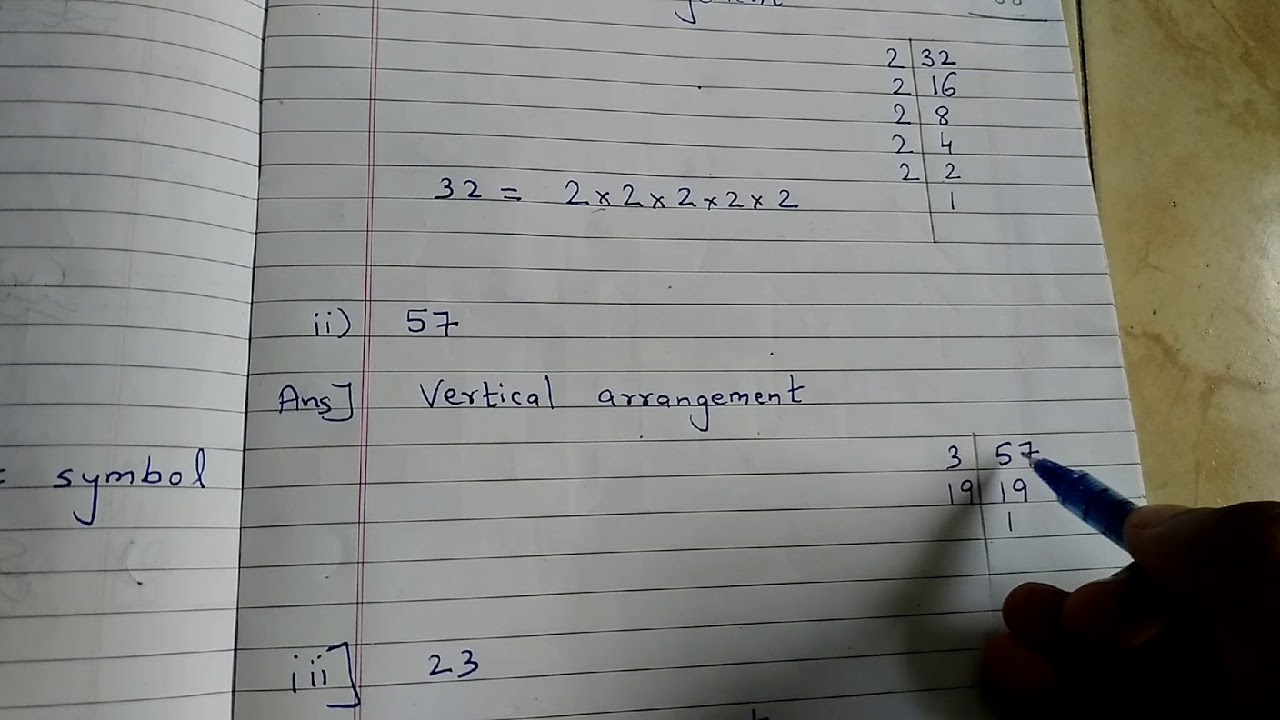 2 | 32
2 | 16
2 | 8
2 | 4
2 | 2
| 1
32 = 2×2×2×2×2
ii) 57
Ans] Vertical arrangement
3 | 57
symbol
19 | 19
| 1
iii] 23